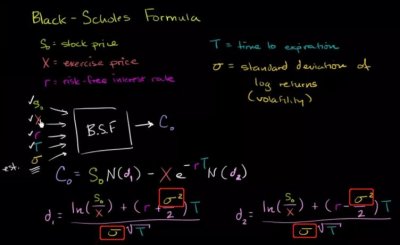 Black-Scholes Formula
S₀ = stock price
X = exercise price
r = risk-free interest rate
T = time to expiration
σ = standard deviation of
log returns
(volatility)
✓ S₀
✓ X
✓ r
✓ T
est. σ
B.S.F
C₀
C₀ = S₀ N(d₁) - X e^(-rT) N(d₂)
d₁ = (ln(S₀/X) + (r + σ²/2) T) / (σ√T)
d₂ = (ln(S₀/X) + (r - σ²/2) T) / (σ√T)